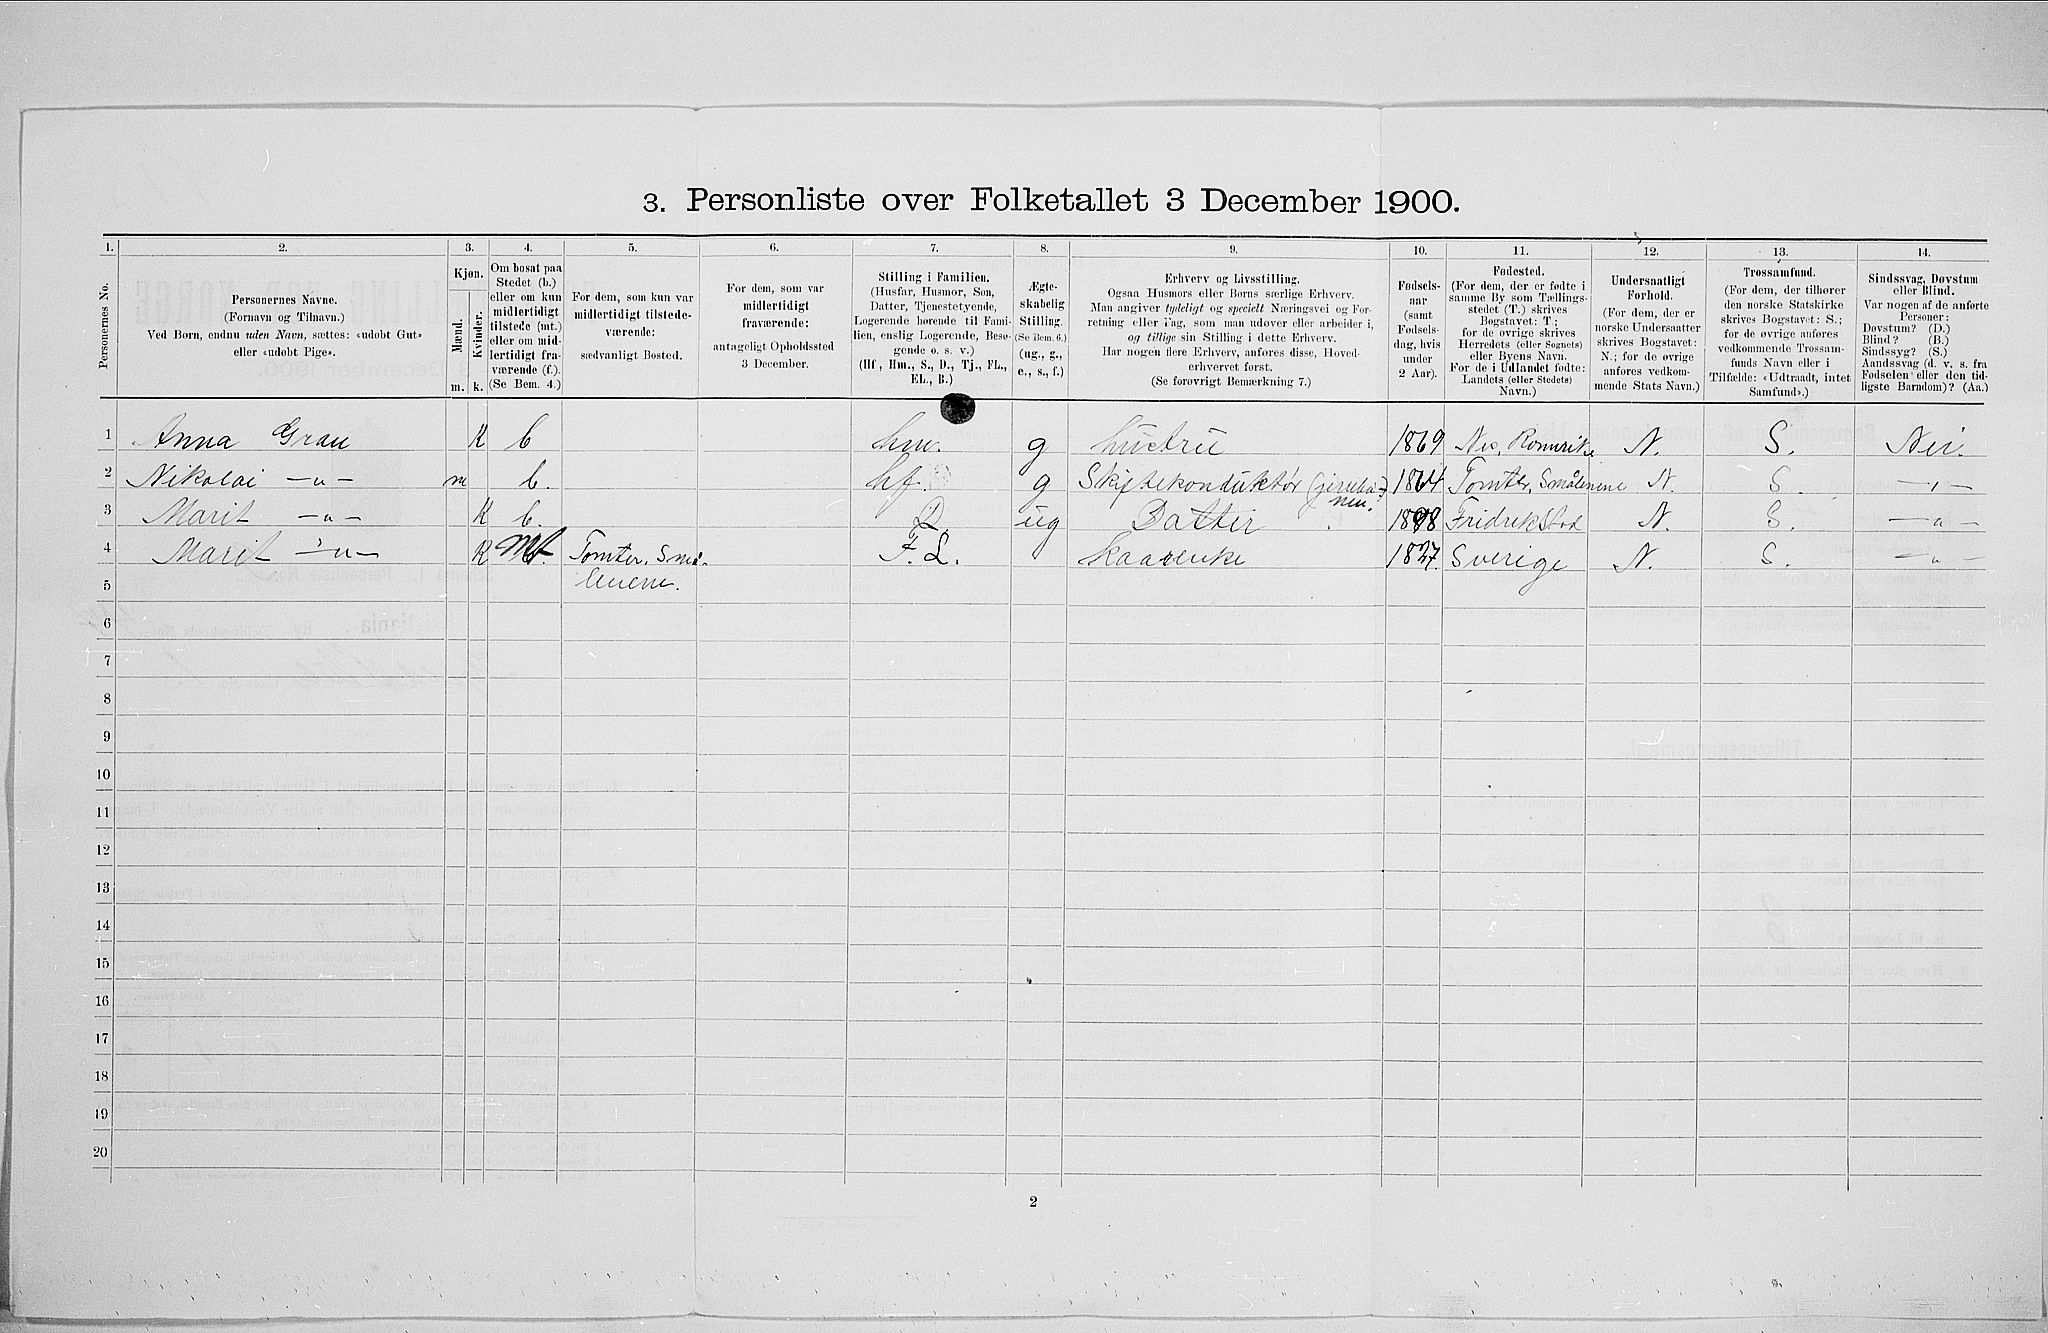 3. Personliste over Folketallet 3 December 1900.
1. 2. 3. 4. 5. 6. 7. 8. 9. 10. 11. 12. 13. 14.
Personernes No.
Personernes Navne.
(Fornavn og Tilnavn.)
Ved Børn, endnu uden Navn, sættes: «udøbt Gut»
eller «udøbt Pige».
Kjøn.
Mænd.
Kvinder.
m. k.
Om bosat paa
Stedet (b.)
eller om kun
midlertidigt
tilstede (mt.)
eller om mid-
lertidigt fra-
værende (f.).
(Se Bem. 4.)
For dem, som kun var
midlertidigt tilstede-
værende:
sædvanligt Bosted.
For dem, som var
midlertidigt
fraværende:
antageligt Opholdssted
3 December.
Stilling i Familien.
(Husfar, Husmor, Søn,
Datter, Tjenestetyende,
Logerende hørende til Fami-
lien, enslig Logerende, Besø-
gende o. s. v.)
(Hf., Hm., S., D., Tj., FL.,
EL., B.)
Ægte-
skabelig
Stilling.
(Se Bem. 6.)
(ug., g.,
e., s., f.)
Erhverv og Livsstilling.
Ogsaa Husmors eller Børns særlige Erhverv.
Man angiver tydeligt og specielt Næringsvei og For-
retning eller Fag, som man udøver eller arbeider i,
og tillige sin Stilling i dette Erhverv.
Har nogen flere Erhverv, anføres disse, Hoved-
erhvervet først.
(Se forøvrigt Bemærkning 7.)
Fødsels-
aar
(samt
Fødsels-
dag, hvis
under
2 Aar).
Fødested.
(For dem, der er fødte i
samme By som Tællings-
stedet (T.) skrives
Bogstavet: T.;
for de øvrige skrives
Herredets (eller Sognets)
eller Byens Navn.
For de i Udlandet fødte:
Landets (eller Stedets)
Navn.)
Undersaatligt
Forhold.
(For dem, der er
norske Undersaatter
skrives Bogstavet:
N.; for de øvrige
anføres vedkom-
mende Stats Navn.)
Trossamfund.
(For dem, der tilhører
den norske Statskirke
skrives Bogstavet: S.;
for de øvrige anføres
vedkommende Trossam-
funds Navn eller i
Tilfælde: «Udtraadt, intet
Samfund».)
Sindssvag, Døvstum
eller Blind.
Var nogen af de anførte
Personer:
Døvstum? (D.)
Blind? (B.)
Sindssyg? (S.)
Aandssvag (d. v. s. fra
Fødselen eller den tid-
ligste Barndom)? (Aa.)
1 Anna Grau K b hm. g hustru 1869 Nes, Romrike N. S. Nei.
2 Nikolai —"— m b. hf. g Skiftekonduktør (jernba- 1864 Tomter, Smålenene N. S. —"—
nen.
3 Marit —"— K b. D. ug Datter 1898 Fridrikstad N. S. —"—
4 Marit —"— K Mt. Tomter, Små- F. L. kaarenke 1827. Sverige N. S. —"—
lenene.
5
6
7
8
9
10
11
12
13
14
15
16
17
18
19
20
2